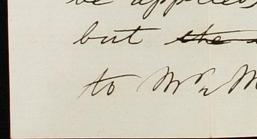 be applied
but the
to Mr. M